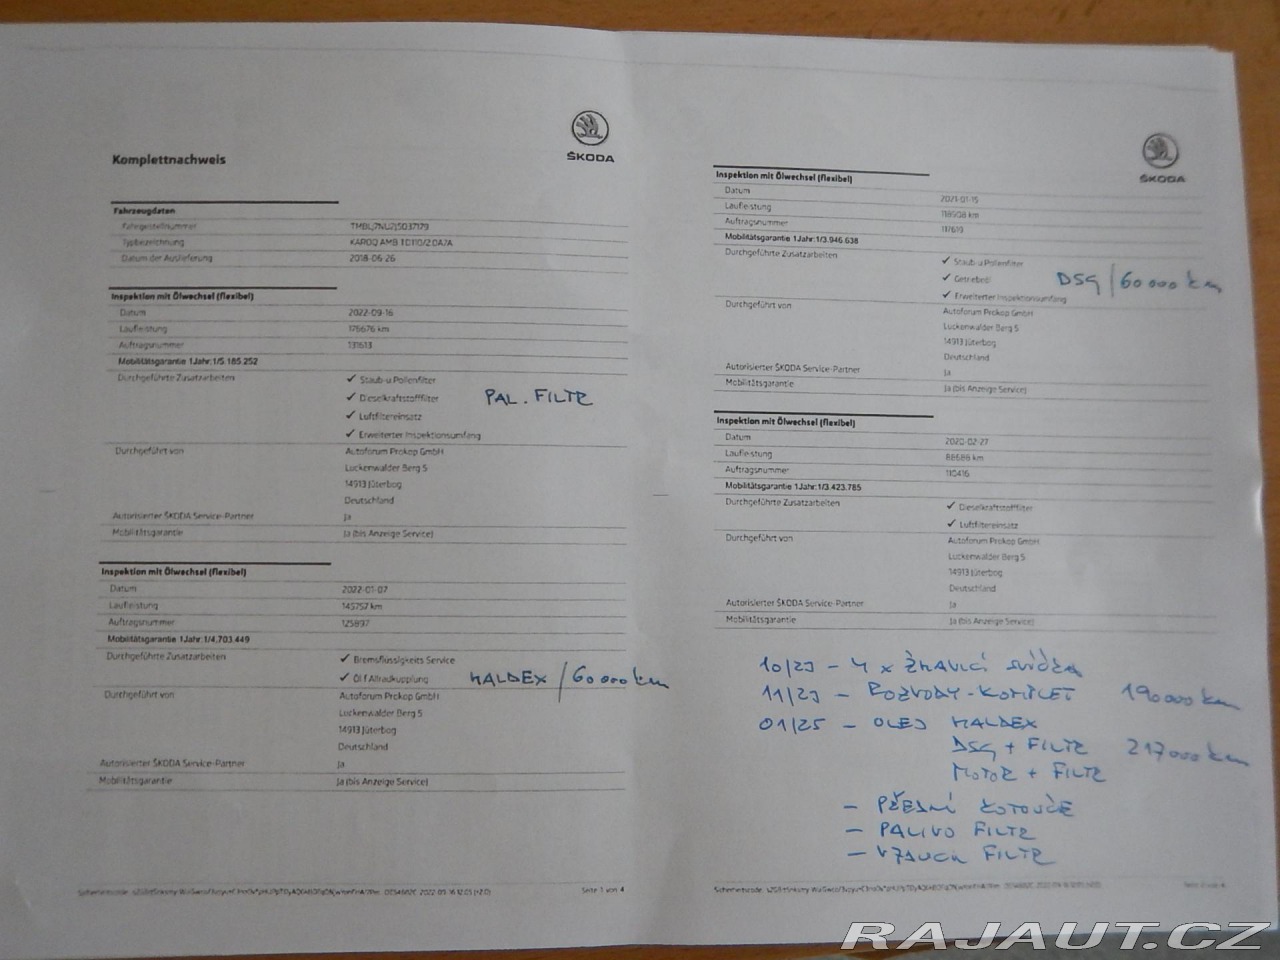 ŠKODA
Komplettnachweis
Fahrzeugdaten
Fahrgestellnummer
Typbezeichnung
Datum der Auslieferung 2018-06-26
Inspektion mit Ölwechsel (flexibel)
Datum 2022-09-16
Laufleistung 176676 km
Auftragsnummer 131613
Mobilitätsgarantie 1 Jahr: 1/5.185.252
Durchgeführte Zusatzarbeiten ✓ Staub-u Pollenfilter
✓ Dieselkraftstofffilter PAL. FILTR
✓ Luftfiltereinsatz
✓ Erweiterter Inspektionsumfang
Durchgeführt von Autoforum Prokop GmbH
Luckenwalder Berg 5
14913 Jüterbog
Deutschland
Autorisierter ŠKODA Service-Partner Ja
Mobilitätsgarantie Ja (bis Anzeige Service)
Inspektion mit Ölwechsel (flexibel)
Datum 2022-01-07
Laufleistung 145757 km
Auftragsnummer 125897
Mobilitätsgarantie 1 Jahr: 1/4.703.449
Durchgeführte Zusatzarbeiten ✓ Bremsflüssigkeits Service
✓ Öl f Allradkupplung HALDEX / 60 000 km
Durchgeführt von Autoforum Prokop GmbH
Luckenwalder Berg 5
14913 Jüterbog
Deutschland
Autorisierter ŠKODA Service-Partner Ja
Mobilitätsgarantie Ja (bis Anzeige Service)
Seite 1 von 4
ŠKODA
Inspektion mit Ölwechsel (flexibel)
Datum 2021-01-15
Laufleistung 118908 km
Auftragsnummer 117619
Mobilitätsgarantie 1 Jahr: 1/3.946.638
Durchgeführte Zusatzarbeiten ✓ Staub-u Pollenfilter
✓ Getriebeöl DSG / 60 000 km
✓ Erweiterter Inspektionsumfang
Durchgeführt von Autoforum Prokop GmbH
Luckenwalder Berg 5
14913 Jüterbog
Deutschland
Autorisierter ŠKODA Service-Partner Ja
Mobilitätsgarantie Ja (bis Anzeige Service)
Inspektion mit Ölwechsel (flexibel)
Datum 2020-02-27
Laufleistung 88688 km
Auftragsnummer 110416
Mobilitätsgarantie 1 Jahr: 1/3.423.785
Durchgeführte Zusatzarbeiten ✓ Dieselkraftstofffilter
✓ Luftfiltereinsatz
Durchgeführt von Autoforum Prokop GmbH
Luckenwalder Berg 5
14913 Jüterbog
Deutschland
Autorisierter ŠKODA Service-Partner Ja
Mobilitätsgarantie Ja (bis Anzeige Service)
10/23 - 4 x ŽHAVICÍ SVÍČKA
11/23 - ROZVODY-KOMPLET 190 000 km
01/25 - OLEJ HALDEX
DSG + FILTR 217 000 km
MOTOR + FILTR
- PŘEDNÍ KOTOUČE
- PALIVO FILTR
- VZDUCH FILTR
Seite 2 von 4
RAJAUT.CZ